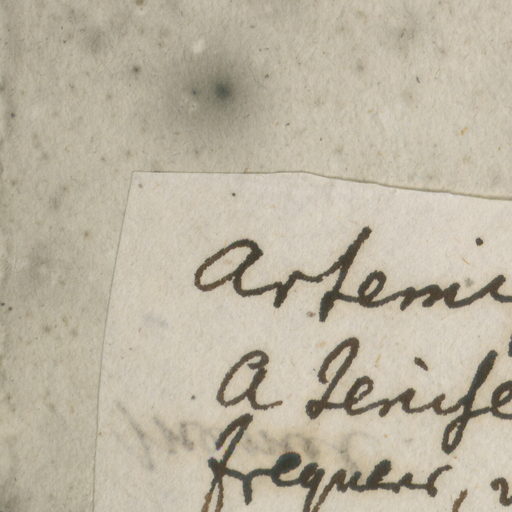 Artemi
A Jenise
frequens,